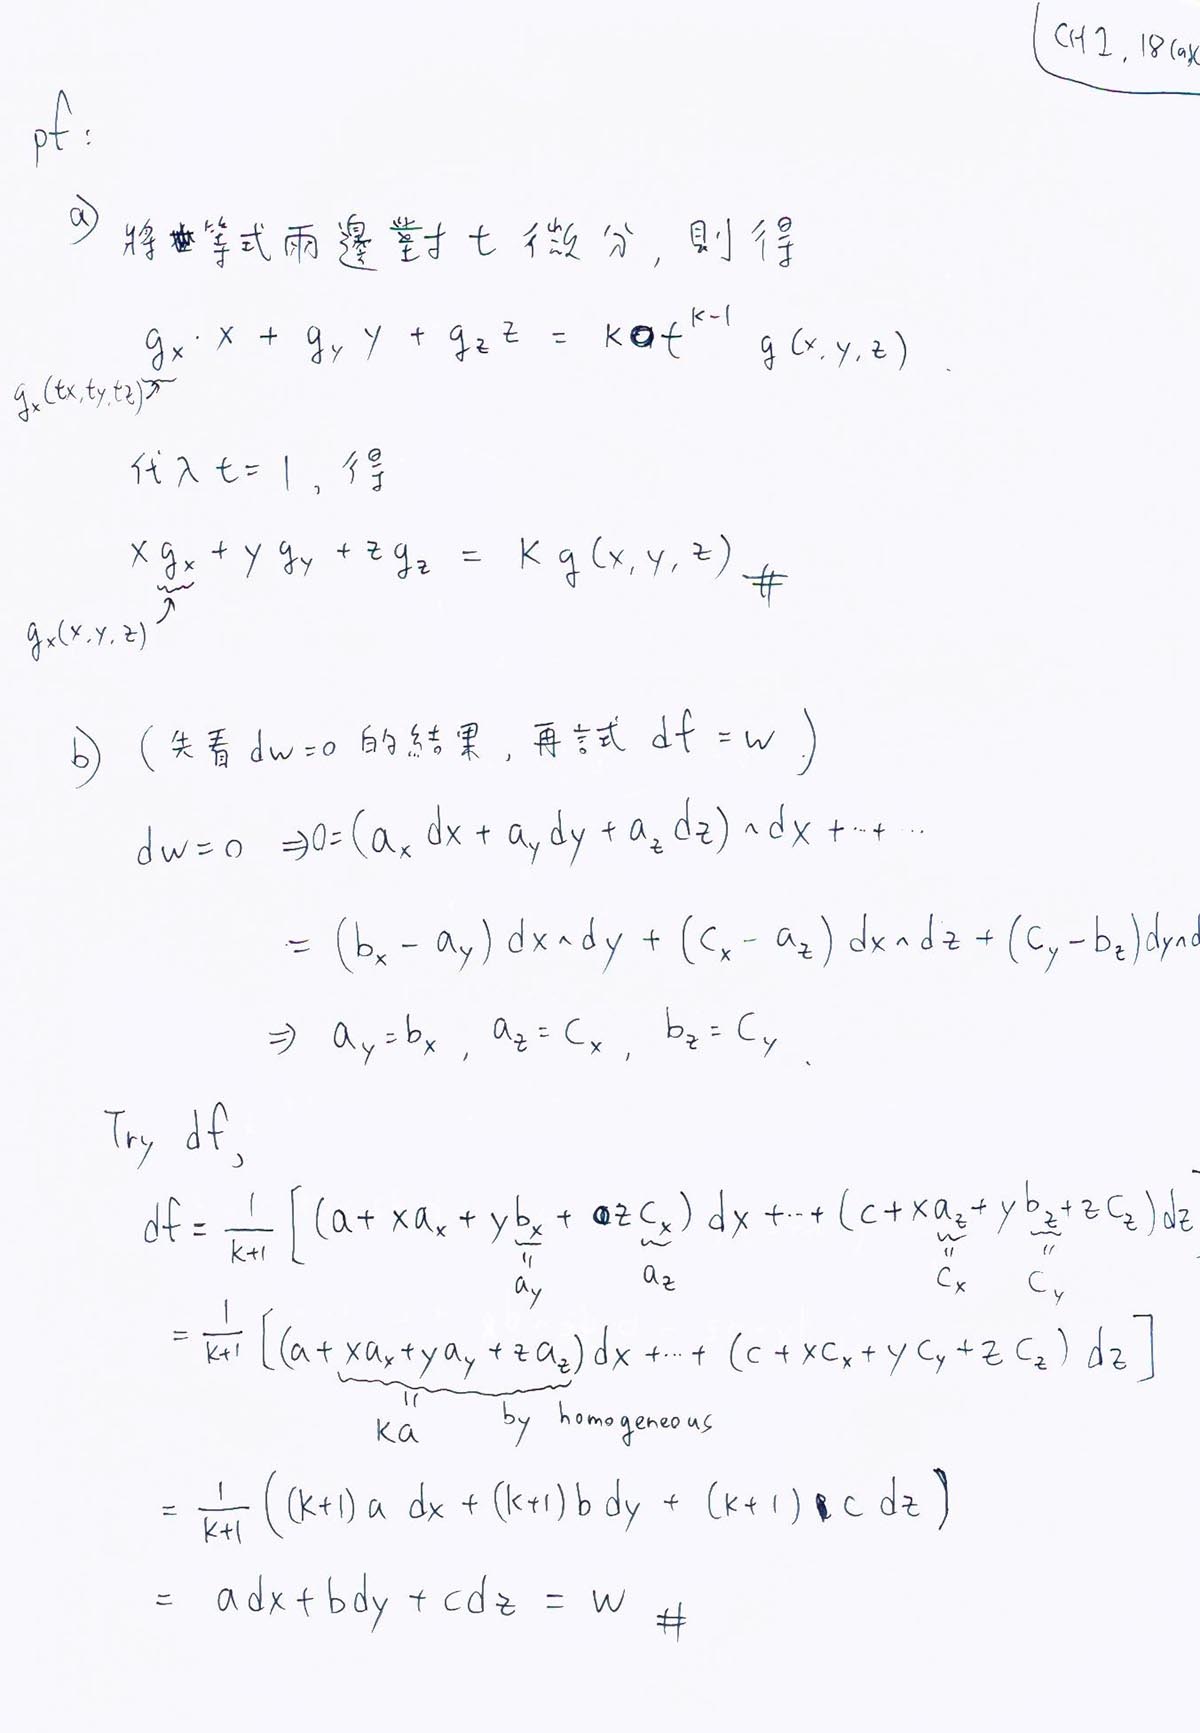 CH1, 18(a)(
pf:
a) 將等式兩邊對 t 微分, 則得
g_x · x + g_y y + g_z z = k t^{k-1} g(x, y, z).
g_x(tx, ty, tz)
代入 t = 1, 得
x g_x + y g_y + z g_z = k g(x, y, z) #
g_x(x, y, z)
b) (先看 dw = 0 的結果, 再試 df = w)
dw = 0 ⇒ 0 = (a_x dx + a_y dy + a_z dz) ∧ dx + ··· + ···
= (b_x - a_y) dx ∧ dy + (c_x - a_z) dx ∧ dz + (c_y - b_z) dy ∧ d
⇒ a_y = b_x, a_z = c_x, b_z = c_y.
Try df,
df = 1/(k+1) [(a + x a_x + y b_x + z c_x) dx + ··· + (c + x a_z + y b_z + z c_z) dz]
= a_y = a_z = c_x = c_y
= 1/(k+1) [(a + x a_x + y a_y + z a_z) dx + ··· + (c + x c_x + y c_y + z c_z) dz]
= ka by homogeneous
= 1/(k+1) ((k+1) a dx + (k+1) b dy + (k+1) c dz)
= a dx + b dy + c dz = w #